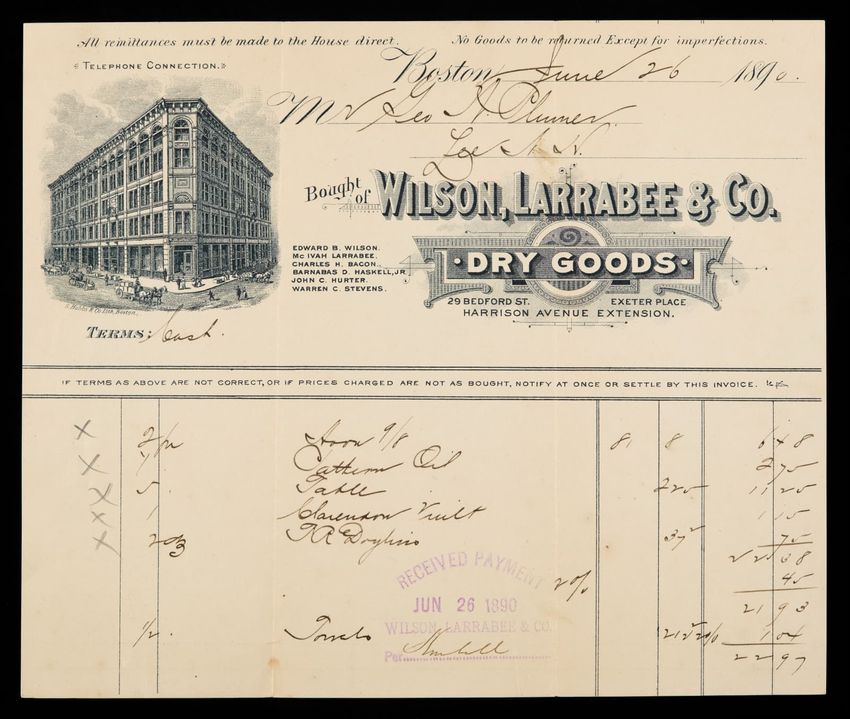 All remittances must be made to the House direct. No Goods to be returned Except for imperfections.
TELEPHONE CONNECTION.
Boston, June 26 1890.
Mr Geo H. Plumer.
Lee N. H.
Bought of WILSON, LARRABEE & CO.
DRY GOODS
EDWARD B. WILSON.
Mc IVAH LARRABEE.
CHARLES H. BACON.
BARNABAS D. HASKELL, JR.
JOHN C. HURTER.
WARREN C. STEVENS.
29 BEDFORD ST. EXETER PLACE
HARRISON AVENUE EXTENSION.
TERMS: Cash.
IF TERMS AS ABOVE ARE NOT CORRECT, OR IF PRICES CHARGED ARE NOT AS BOUGHT, NOTIFY AT ONCE OR SETTLE BY THIS INVOICE.
9/8 81 8 6 48
Oil 2 75
5 Table 225 11 25
1 Clarendon Quilt 1 15
2 Doylies 37 75
22 38
2% 45
21 93
1/2 Towels 1 04
22 97
RECEIVED PAYMENT
JUN 26 1890
WILSON, LARRABEE & CO.
Per